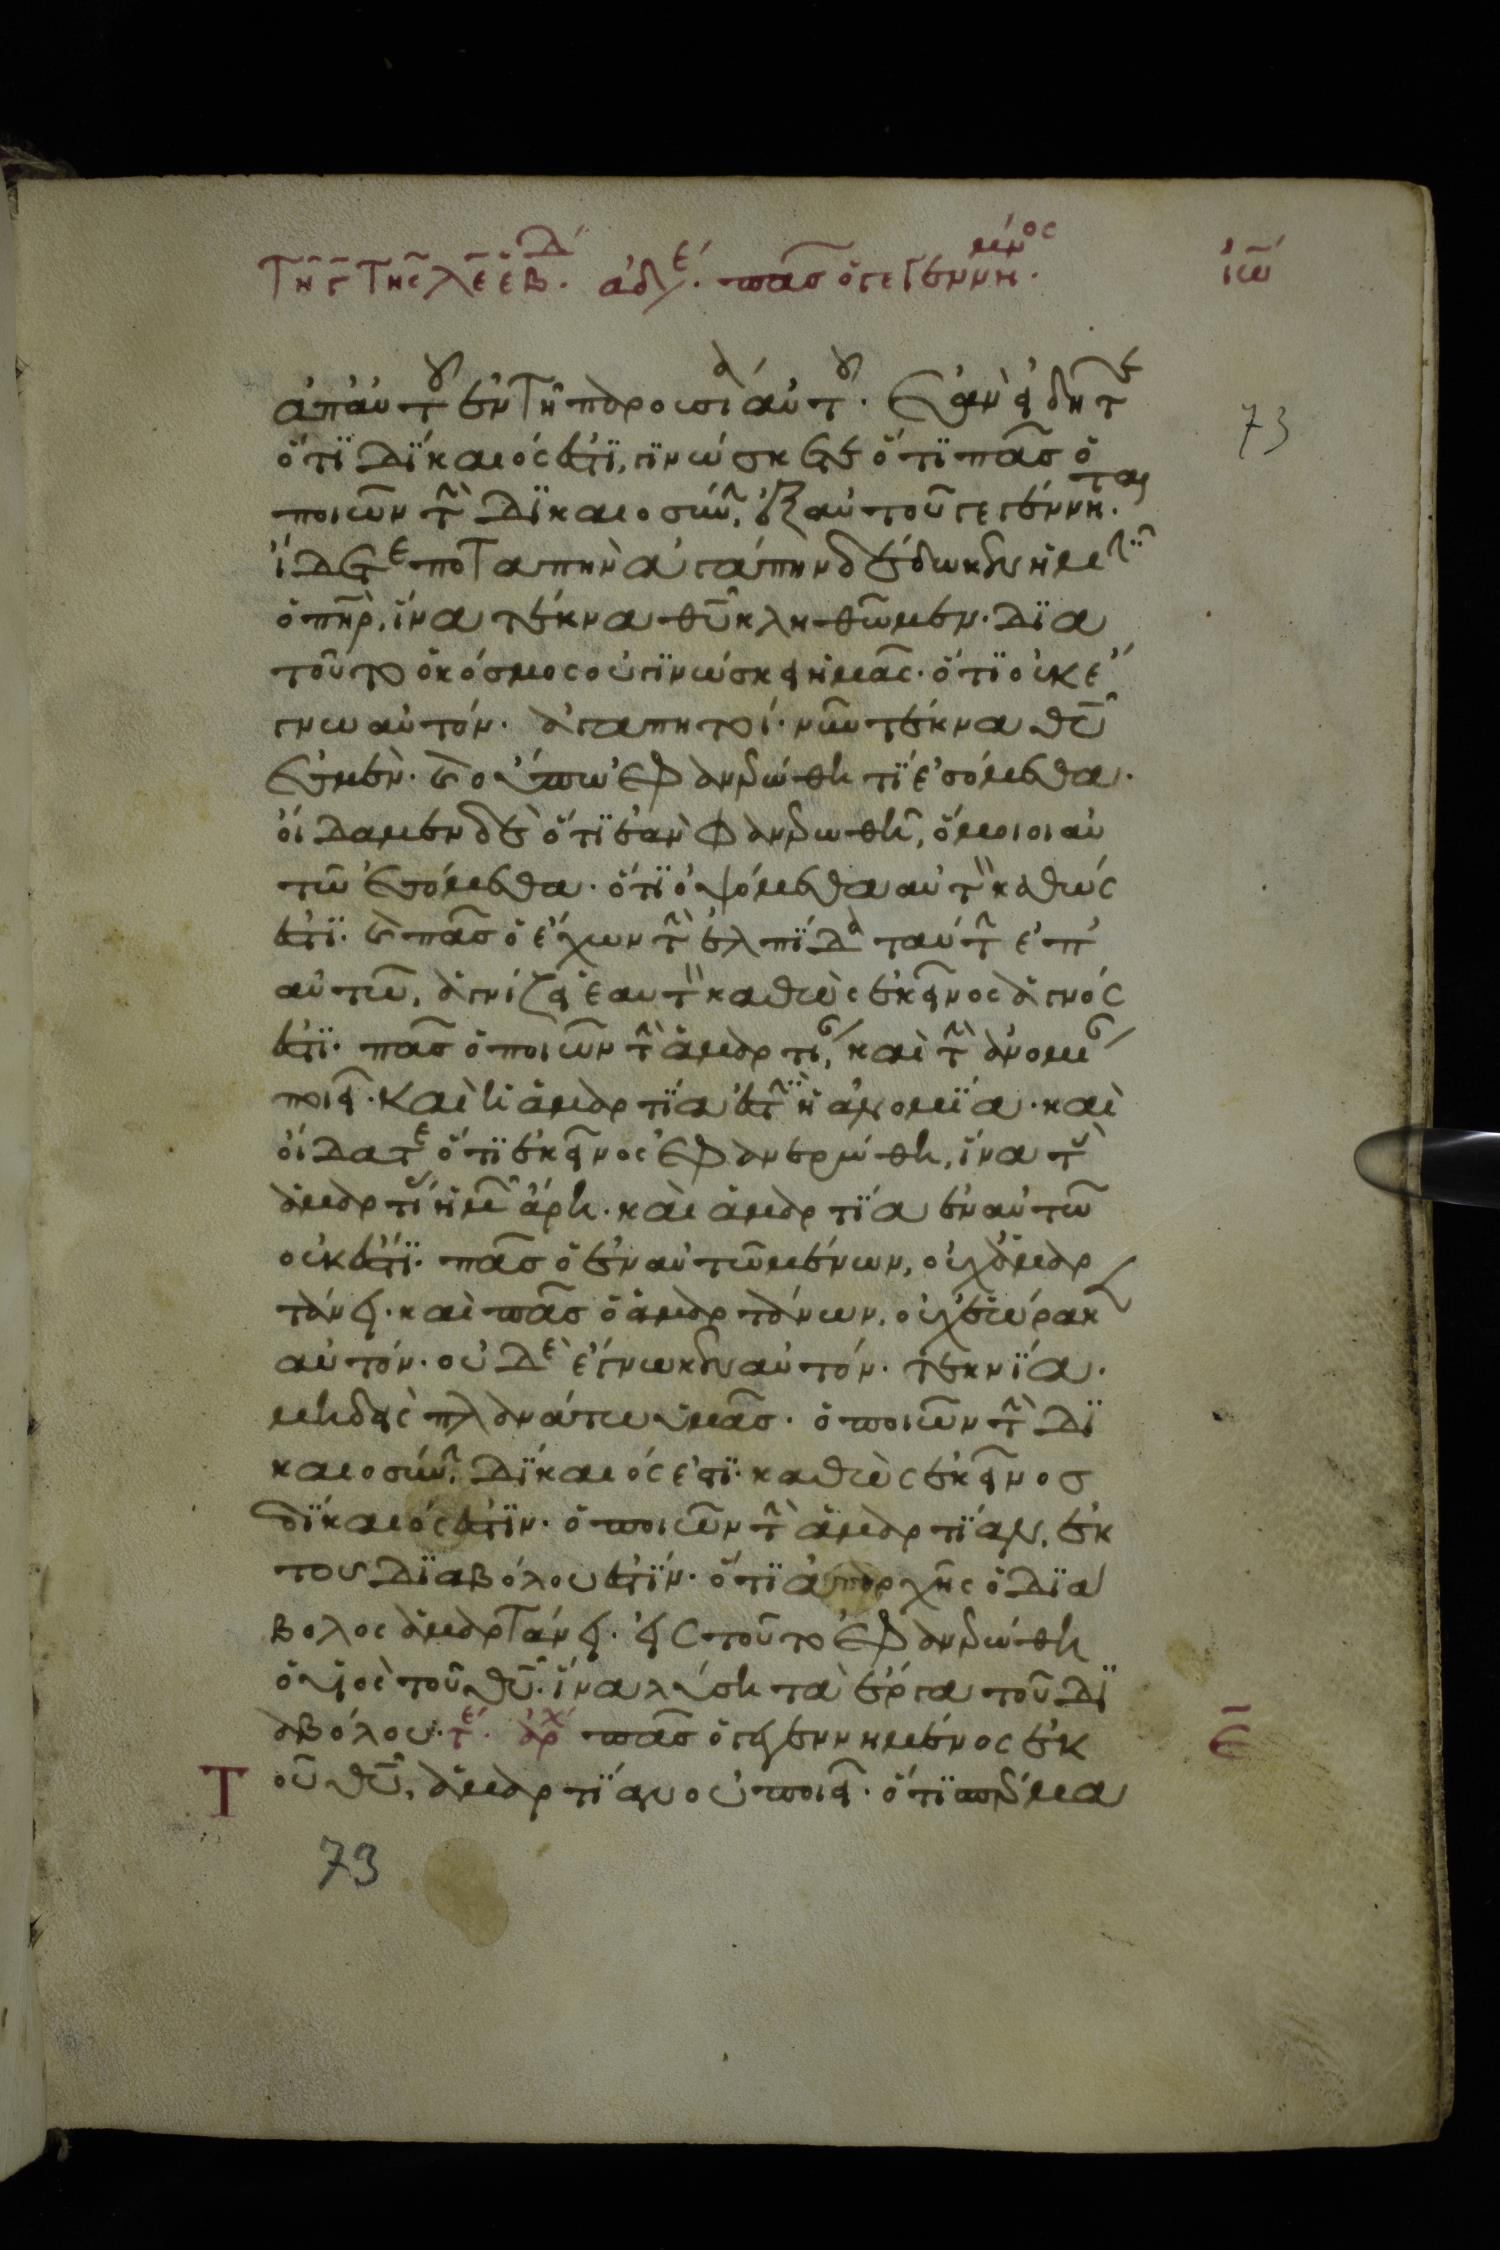 τῆ γ τῆς λε ἑβδ. ἀδελ. πᾶσ ὁ γεγεννημένος ἰω
ἀπ' αὐτοῦ ἐν τῆ παρουσία αὐτοῦ. ἐὰν εἰδῆτε
73
ὅτι δίκαιός ἐστι, γινώσκετε ὅτι πᾶσ ὁ
ποιῶν τὴν δικαιοσύνην, ἐξ αὐτοῦ γεγέννηται.
ἴδετε ποταπὴν ἀγάπην δέδωκεν ἡμῖν
ὁ πηρ, ἵνα τέκνα θυ κληθῶμεν. δια
τοῦτο ὁ κόσμος οὐ γινώσκει ἡμᾶς. ὅτι οὐκ ἔ
γνω αὐτόν. ἀγαπητοί. νῦν τέκνα θυ
ἐσμὲν. καὶ οὔπω ἐφανερώθη τί ἐσόμεθα.
οἴδαμεν δὲ ὅτι ἐὰν φανερωθῆ, ὅμοιοι αὐ
τῶ ἐσόμεθα. ὅτι ὀψόμεθα αὐτὸν καθώς
ἐστι. καὶ πᾶσ ὁ ἔχων τὴν ἐλπίδα ταύτην ἐπ'
αὐτῶ, ἁγνίζει ἑαυτὸν καθὼς ἐκεῖνος ἁγνός
ἐστι. πᾶσ ὁ ποιῶν τὴν ἁμαρτίαν, καὶ τὴν ἀνομίαν
ποιεῖ. καὶ ἡ ἁμαρτία ἐστὶν ἡ ἀνομία. καὶ
οἴδατε ὅτι ἐκεῖνος ἐφανερώθη, ἵνα τὰς
ἁμαρτίας ἡμῶν ἄρη. καὶ ἁμαρτία ἐν αὐτῶ
οὐκ ἔστι. πᾶσ ὁ ἐν αὐτῶ μένων, οὐχ ἁμαρ
τάνει. καὶ πᾶσ ὁ ἁμαρτάνων, οὐχ ἑώρακεν
αὐτόν. οὐδὲ ἔγνωκεν αὐτόν. τεκνία.
μηδεὶς πλανάτω ὑμᾶσ. ὁ ποιῶν τὴν δι
καιοσύνην, δίκαιός ἐστι. καθὼς ἐκεῖνοσ
δίκαιός ἐστιν. ὁ ποιῶν τὴν ἁμαρτίαν, ἐκ
του διαβόλου ἐστίν. ὅτι ἀπαρχῆς ὁ διά
βολος ἁμαρτάνει. εἰς τοῦτο ἐφανερώθη
ὁ υἱὸς τοῦ θυ. ἵνα λύση τὰ ἔργα τοῦ δι
αβόλου. τέ. ἀρχ πᾶσ ὁ γεγεννημένος ἐκ Ε
Τ οῦ θυ, ἁμαρτίαν οὐ ποιεῖ. ὅτι σπέρμα
73